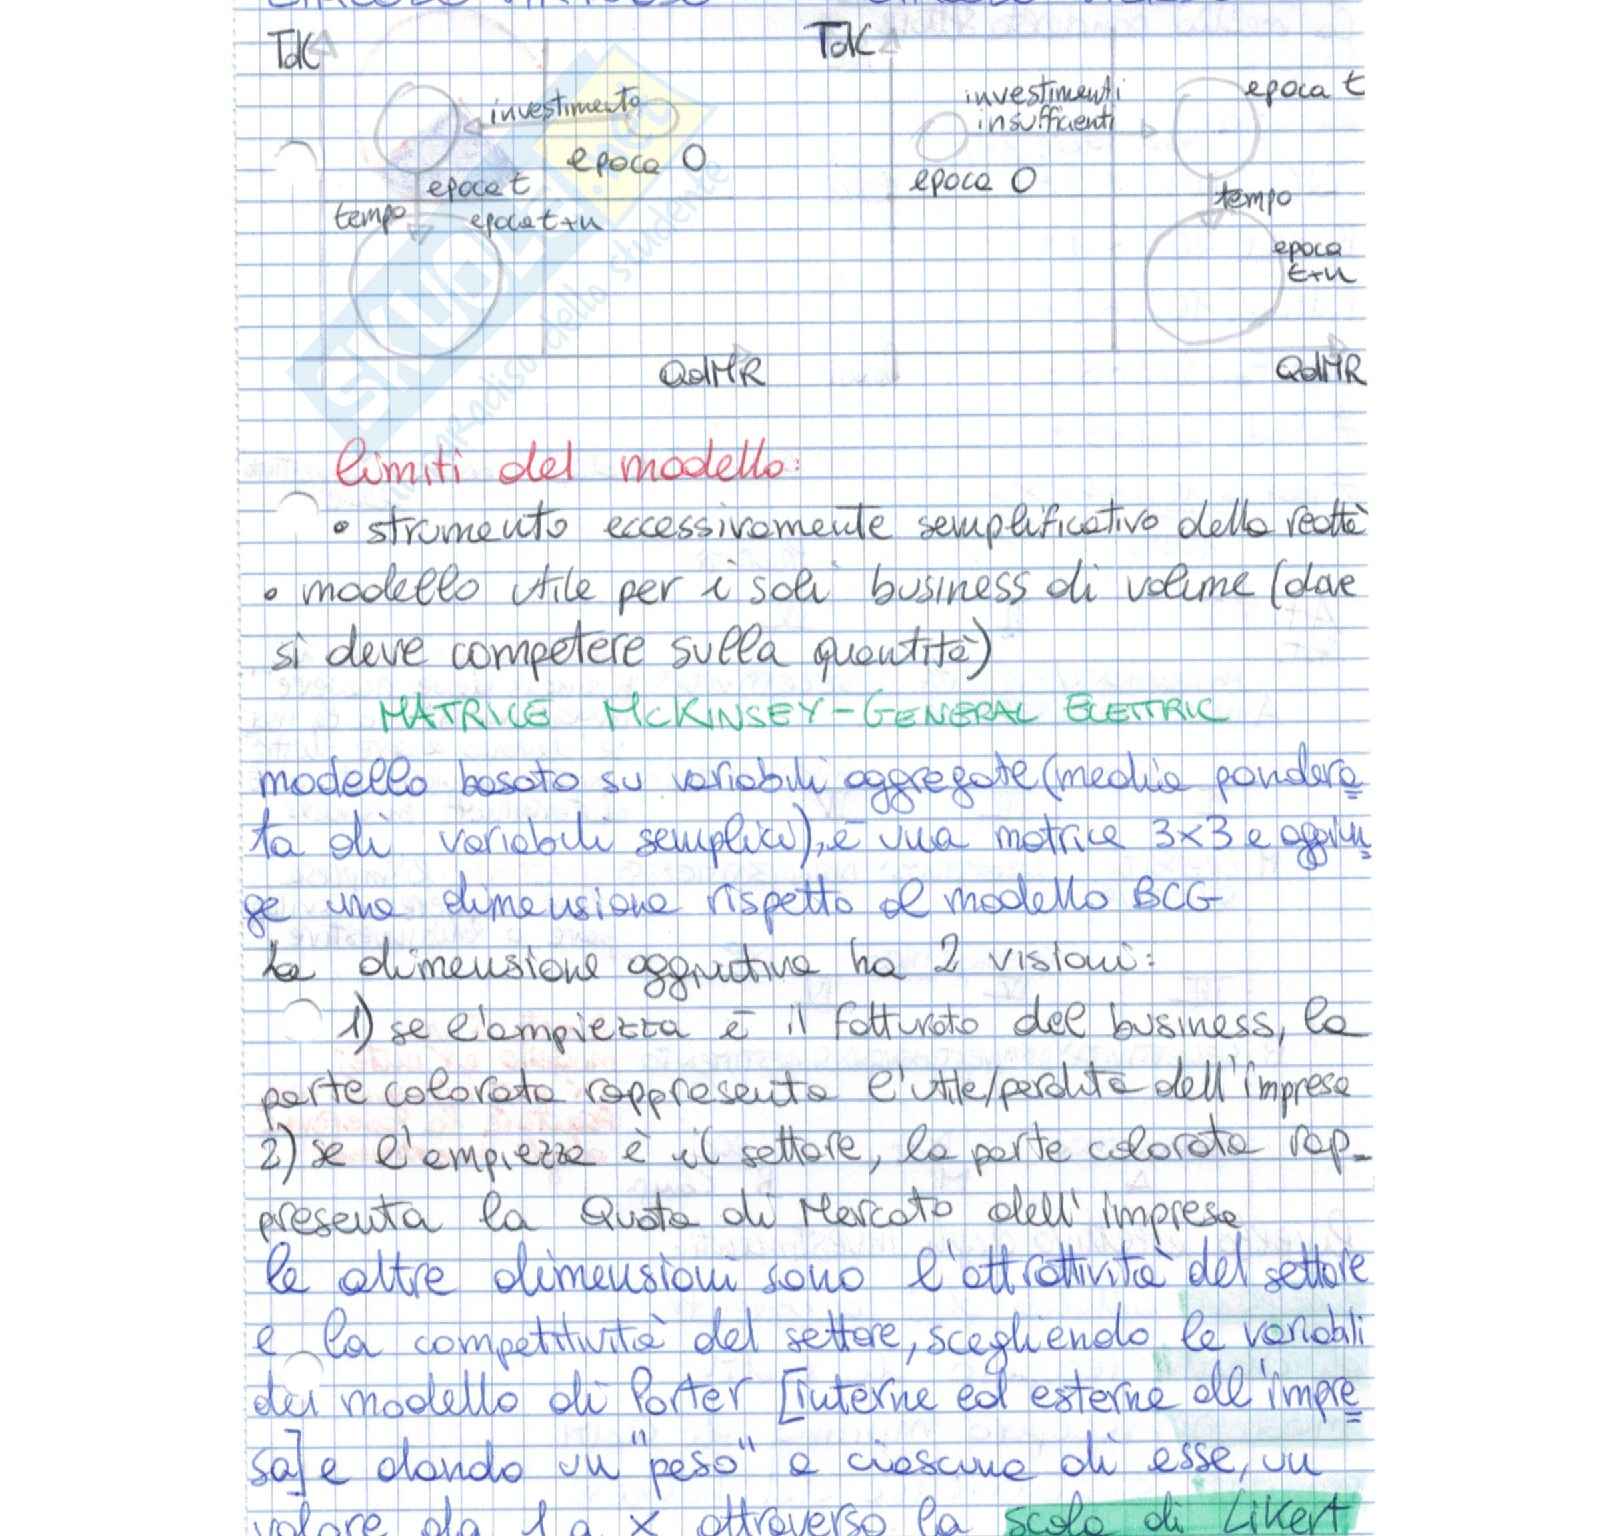 CIRCOLO VIRTUOSO CIRCOLO VIZIOSO
TdC TdC
investimento
epoca 0
epoca t
tempo
epoca t+n
QdMR
investimenti
insufficienti
epoca t
epoca 0
tempo
epoca
t+n
QdMR
SKUOLA
il paradiso dello studente
limiti del modello:
• strumento eccessivamente semplificativo della realtà
• modello utile per i soli business di volume (dove
si deve competere sulla quantità)
MATRICE McKINSEY-GENERAL ELETTRIC
modello basato su variabili aggregate (media pondera
ta di variabili semplici), è una matrice 3x3 e aggiun
ge una dimensione rispetto al modello BCG
la dimensione aggiuntiva ha 2 visioni:
1) se l'ampiezza è il fatturato del business, la
parte colorata rappresenta l'utile/perdita dell'impresa
2) se l'ampiezza è il settore, la parte colorata rap-
presenta la Quota di Mercato dell'impresa
le altre dimensioni sono l'attrattività del settore
e la competitività del settore, scegliendo le variabili
dal modello di Porter [interne ed esterne all'impre
sa] e dando un "peso" a ciascuna di esse, un
valore da 1 a x attraverso la scala di Likert